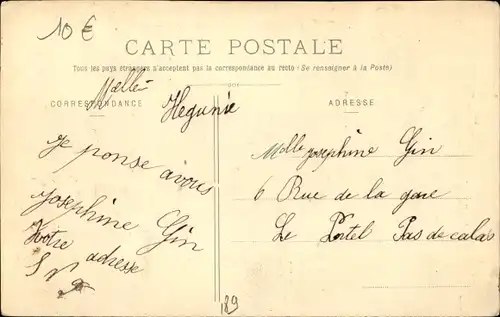 10 €
CARTE POSTALE
Tous les pays étrangers n'acceptent pas la correspondance au recto (Se renseigner à la Poste)
CORRESPONDANCE
Melle
Hegunie
je ponse avous
Josephine Gin
Votre adresse
S v p
ADRESSE
Melle josephine Gin
6 Rue de la gare
Le Portel Pas de calais
189